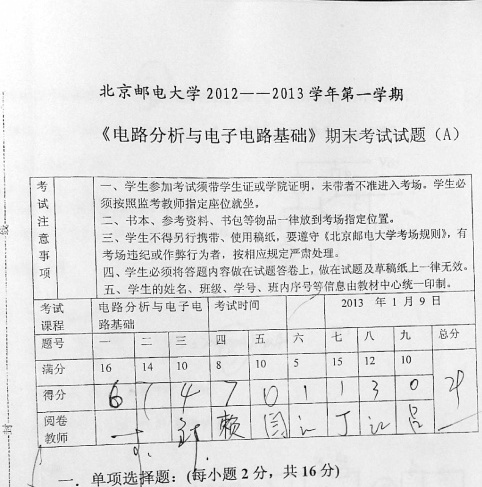 北京邮电大学 2012——2013 学年第一学期
《电路分析与电子电路基础》期末考试试题（A）
考试注意事项
一、学生参加考试须带学生证或学院证明，未带者不准进入考场。学生必
须按照监考教师指定座位就坐。
二、书本、参考资料、书包等物品一律放到考场指定位置。
三、学生不得另行携带、使用稿纸，要遵守《北京邮电大学考场规则》，有
考场违纪或作弊行为者，按相应规定严肃处理。
四、学生必须将答题内容做在试题答卷上，做在试题及草稿纸上一律无效。
五、学生的姓名、班级、学号、班内序号等信息由教材中心统一印制。
考试课程 电路分析与电子电路基础 考试时间 2013 年 1 月 9 日
题号 一 二 三 四 五 六 七 八 九 总分
满分 16 14 10 8 10 5 15 12 10
得分 6 1 4 7 0 1 1 3 0
阅卷教师 赖 丁
一．单项选择题：(每小题 2 分，共 16 分)